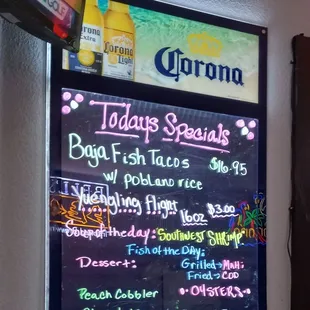 Corona
Extra
Corona
Light
Corona
Todays Specials
Baja Fish Tacos $16.95
w/ poblano rice
Yuengling Flight 16oz $3.00
Soup of the day: Southwest Shrimp
Fish of the Day:
Dessert: Grilled→Mahi
Fried→COD
Peach Cobbler • OYSTERS •